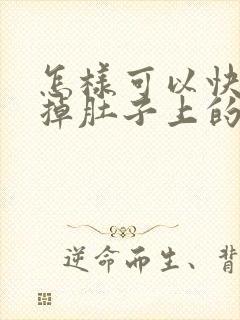 怎樣可以快
掉肚子上的
逆命而生、背